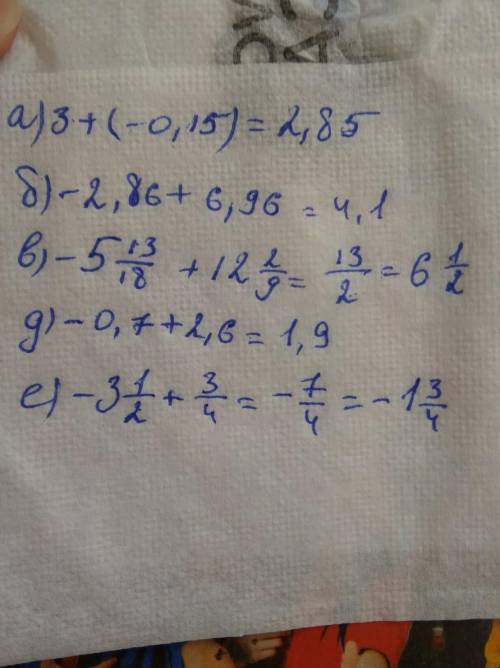 а) 3 + (-0,15) = 2,85
б) -2,86 + 6,96 = 4,1
в) -5 13/18 + 12 2/9 = 13/2 = 6 1/2
д) -0,7 + 2,6 = 1,9
е) -3 1/2 + 3/4 = -7/4 = -1 3/4